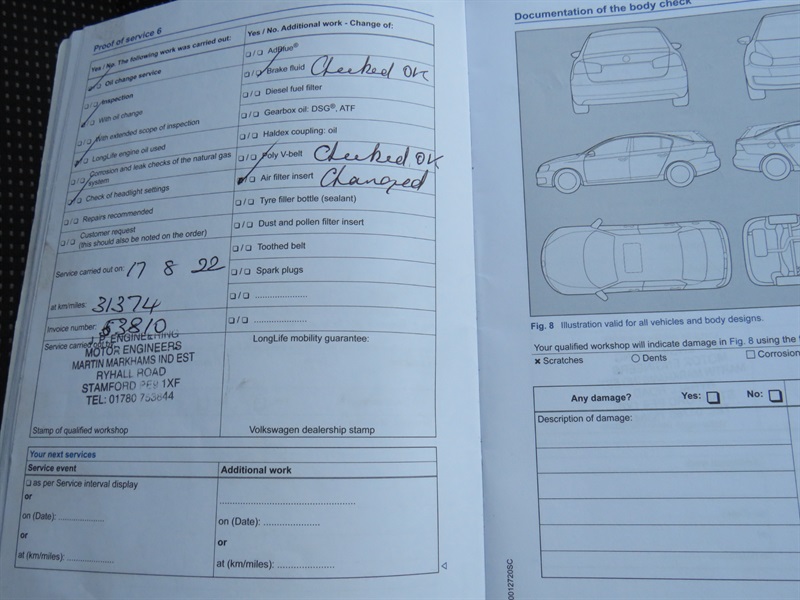 Proof of service 6
Yes / No. The following work was carried out:
❏/❏ Oil change service
❏/❏ Inspection
❏/❏ With oil change
❏/❏ With extended scope of inspection
❏/❏ LongLife engine oil used
❏/❏ Corrosion and leak checks of the natural gas
system
❏/❏ Check of headlight settings
❏/❏ Repairs recommended
❏/❏ Customer request
(this should also be noted on the order)
Service carried out on: 17 8 22
at km/miles: 31374
Invoice number: 53810
Service carried out by:
ENGINEERING
MOTOR ENGINEERS
MARTIN MARKHAMS IND EST
RYHALL ROAD
STAMFORD PE9 1XF
TEL: 01780 753844
Stamp of qualified workshop
Yes / No. Additional work - Change of:
❏/❏ AdBlue®
❏/❏ Brake fluid Checked OK
❏/❏ Diesel fuel filter
❏/❏ Gearbox oil: DSG®, ATF
❏/❏ Haldex coupling: oil
❏/❏ Poly V-belt Checked OK
❏/❏ Air filter insert Changed
❏/❏ Tyre filler bottle (sealant)
❏/❏ Dust and pollen filter insert
❏/❏ Toothed belt
❏/❏ Spark plugs
❏/❏ .....................
❏/❏ .....................
LongLife mobility guarantee:
Volkswagen dealership stamp
Your next services
Service event
❏ as per Service interval display
or
on (Date): ..................
or
at (km/miles): ..................
Additional work
..................................................
on (Date): .....................
or
at (km/miles): .....................
Documentation of the body check
Fig. 8 Illustration valid for all vehicles and body designs.
Your qualified workshop will indicate damage in Fig. 8 using the
✖ Scratches ○ Dents ☐ Corrosion
Any damage? Yes: ❏ No: ❏
Description of damage:
0012720SC